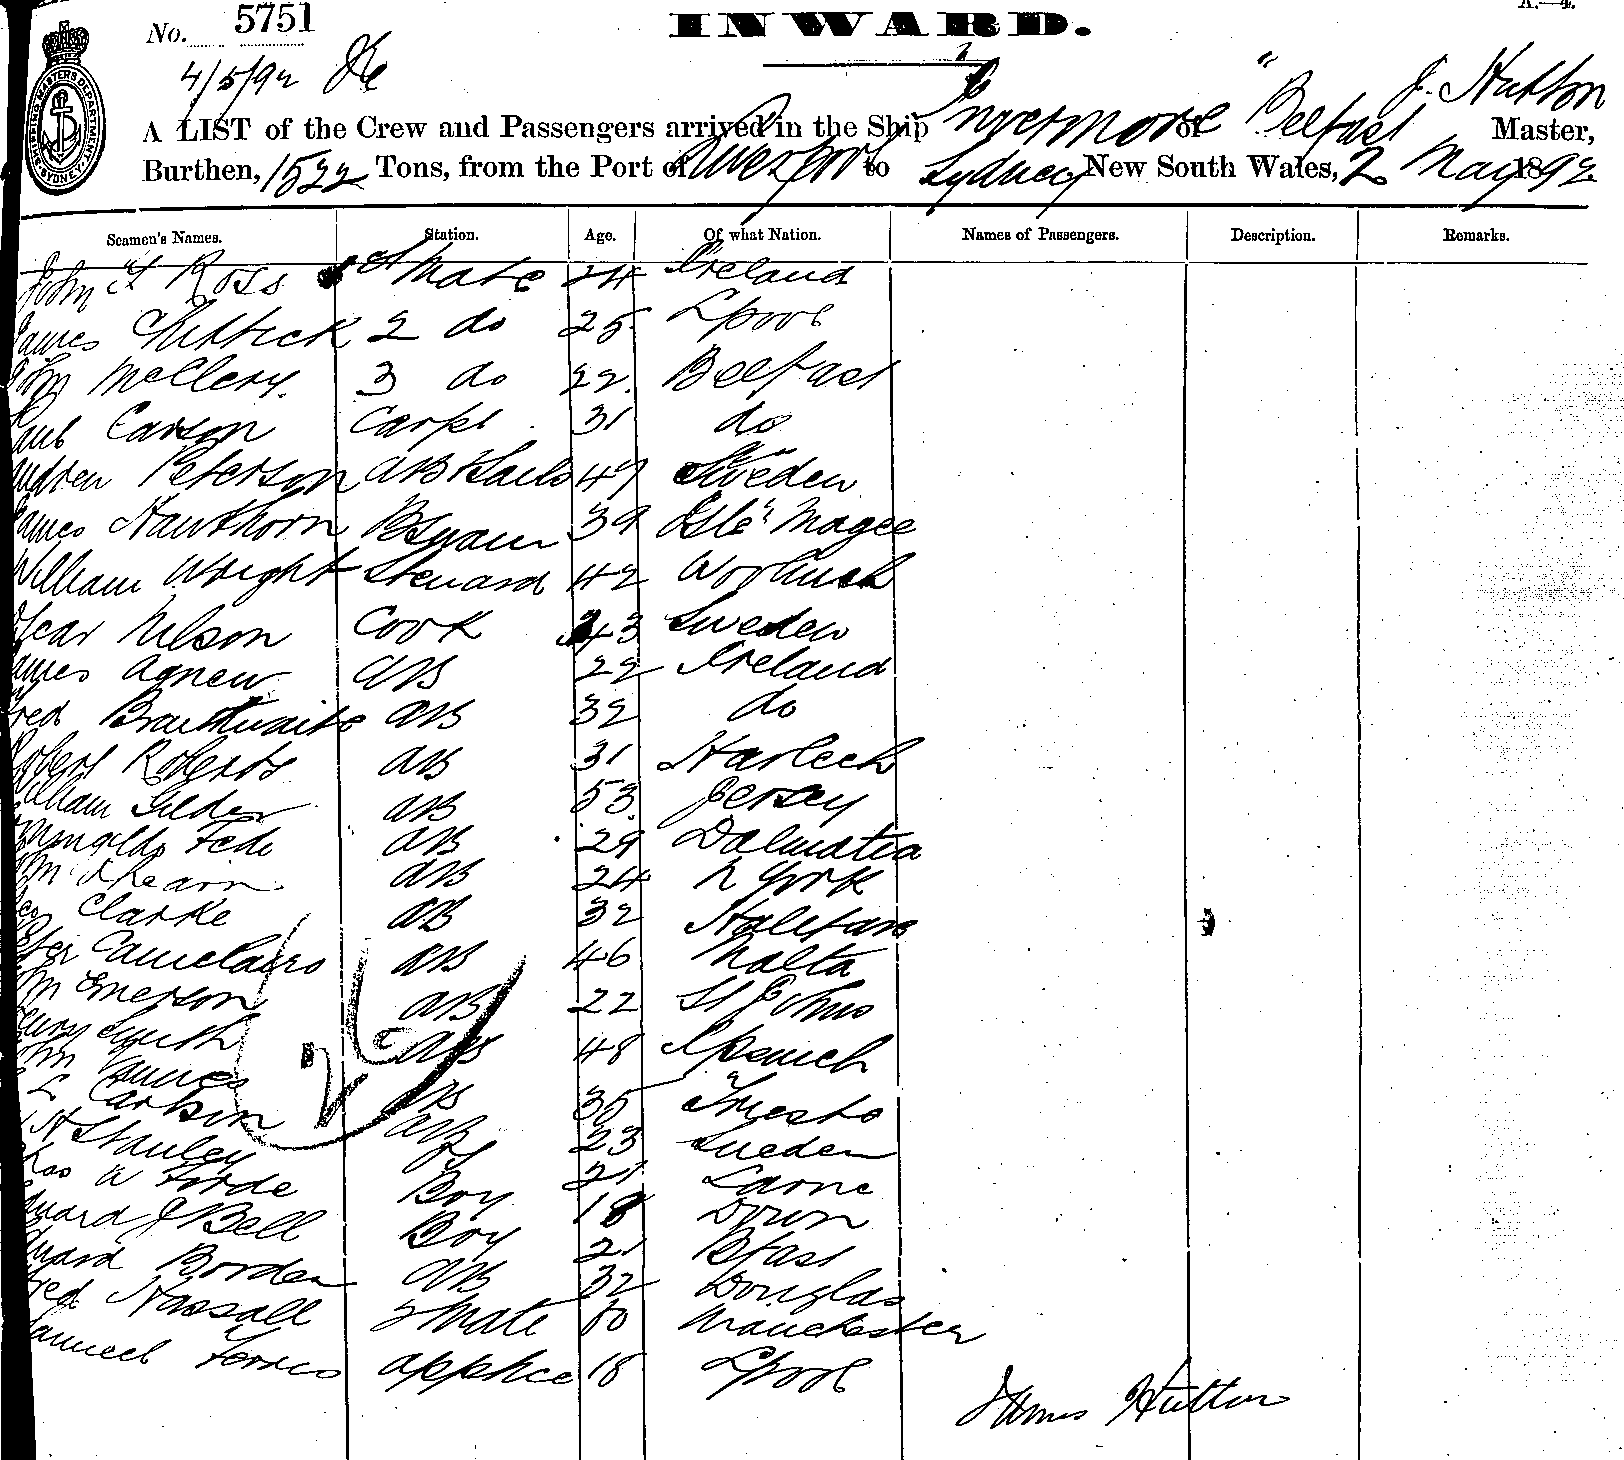 No. 5751
INWARD.
4/5/92
A LIST of the Crew and Passengers arrived in the Ship "Invermore" of Belfast J. Hutton Master,
Burthen, 1522 Tons, from the Port of Liverpool to Sydney New South Wales, 2 May 1892
SHIPPING MASTERS DEPARTMENT SYDNEY
Seamen's Names. Station. Age. Of what Nation. Names of Passengers. Description. Remarks.
John Ross 1st Mate 24 Ireland
James 2 do 25 Lpool
John McClery. 3 do 22 Belfast
Carson Carpt 31 do
Andrew Peterson AB & Sails 49 Sweden
James Hawthorn Bswain 39 Isle Magee
William Wright Steward 42 Woolwich
Oscar Nelson Cook 43 Sweden
James Agnew AB 22 Ireland
Fred Braithwaite AB 32 do
Robert Roberts AB 31 Harlech
William Gilder AB 53 Jersey
Fede AB 29 Dalmatia
AB 24 N York
Geo Clarke AB 32 Halifax
Peter AB 46 Malta
Wm Emerson AB 22 St Johns
Henry Smith AB 48 Ipswich
Wm James AB 35 Trieste
C L Carlson AB 23 Sweden
H Stanley 21 Larne
Chas W Forde Boy 18 Down
Edward J Bell Boy 21 Bfast
Edward Borden AB 32 Douglas
Fred Hassall 2 Mate Manchester
Samuel apptice 18 Lpool
James Hutton